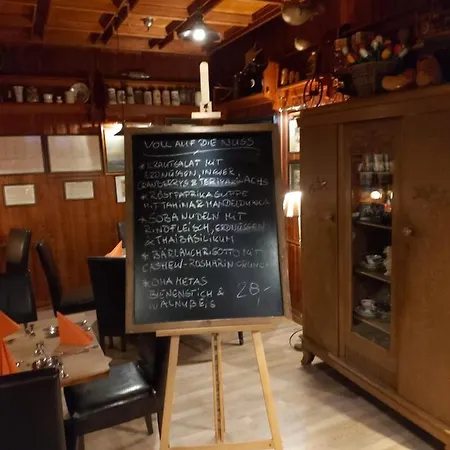 VOLL AUF DIE NUSS
* KRAUTSALAT MIT
ERDNÜSSEN, INGWER,
CRANBERRYS & TERIYAKILACHS
* RÖSTPAPRIKASUPPE
MIT TAHINA & MANDELDUKKA
* SOBANUDELN MIT
RINDFLEISCH, ERDNÜSSEN
& THAIBASILIKUM
* BÄRLAUCHRISOTTO MIT
CASHEW-ROSMARIN
* OMA METAS
BIENENSTICH &
WALNUSSEIS
28,-